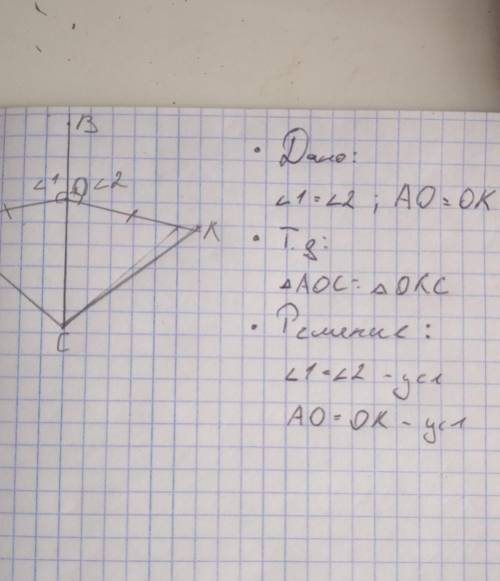 B
∠1 ∠2
K
C
• Дано:
∠1=∠2 ; AO=OK
• Т.д:
△AOC=△OKC
• Решение:
∠1=∠2 - усл
AO=OK - усл